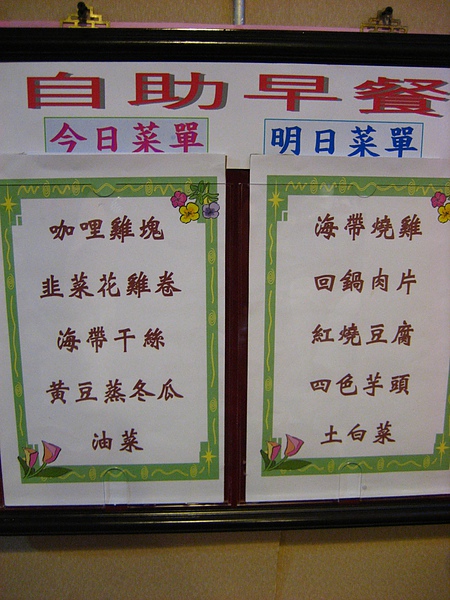 自助早餐
今日菜單
咖哩雞塊
韭菜花雞卷
海帶干絲
黃豆蒸冬瓜
油菜
明日菜單
海帶燒雞
回鍋肉片
紅燒豆腐
四色芋頭
土白菜